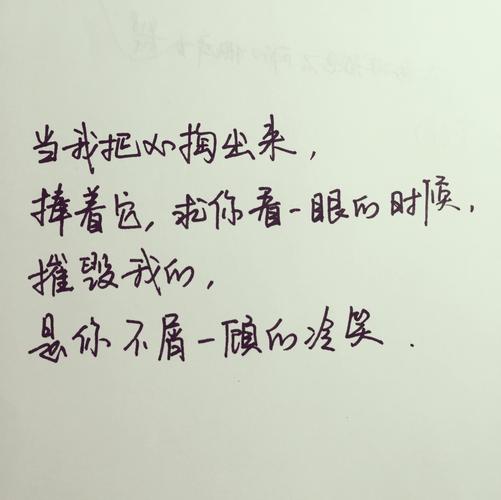 当我把心掏出来，
捧着它，求你看一眼的时候，
摧毁我的，
是你不屑一顾的冷笑．